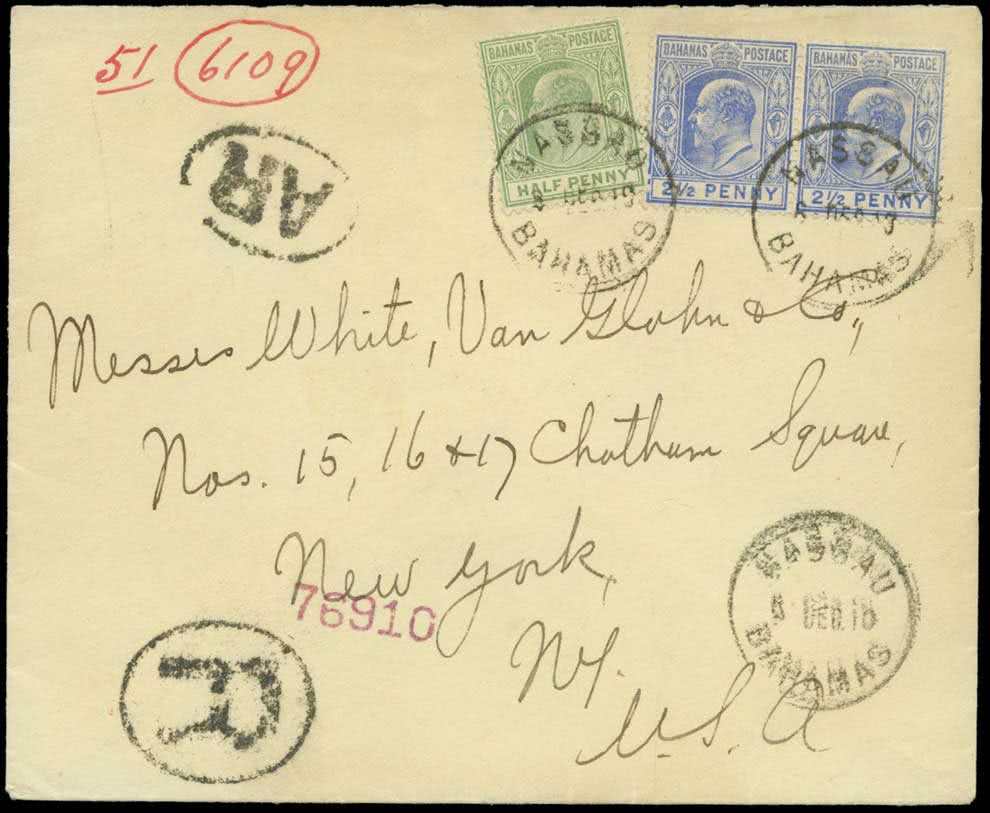 51 6109
BAHAMAS POSTAGE
HALF PENNY
BAHAMAS POSTAGE
2½ PENNY
BAHAMAS POSTAGE
2½ PENNY
NASSAU
BAHAMAS
NASSAU
BAHAMAS
AR
Messrs White, Van Glahn & Co.,
Nos. 15, 16 & 17 Chatham Square,
New York,
76910
N.Y.
U.S.A
NASSAU
8 DEC.18
BAHAMAS
R